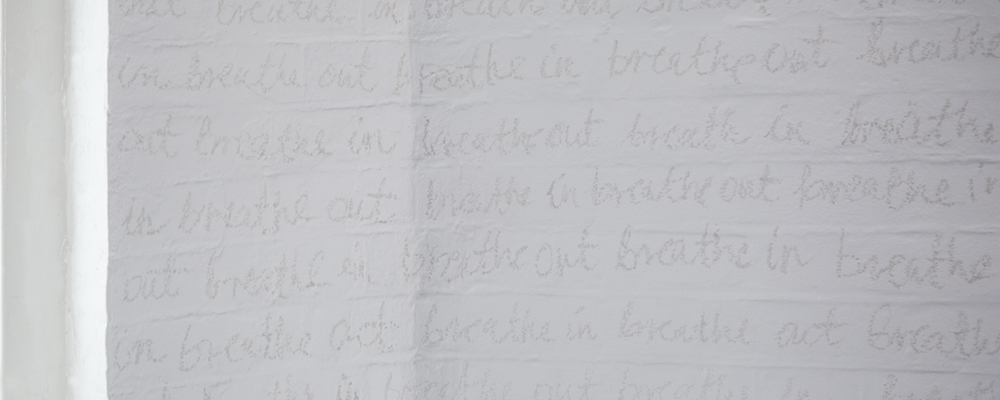 out breathe in breathe out breathe
in breathe out breathe in breathe out breathe
out breathe in breathe out breath in breathe
in breathe out breathe in breathe out breathe in
out breathe in breathe out breathe in breathe
in breathe out breathe in breathe out breathe
in breathe out breathe in